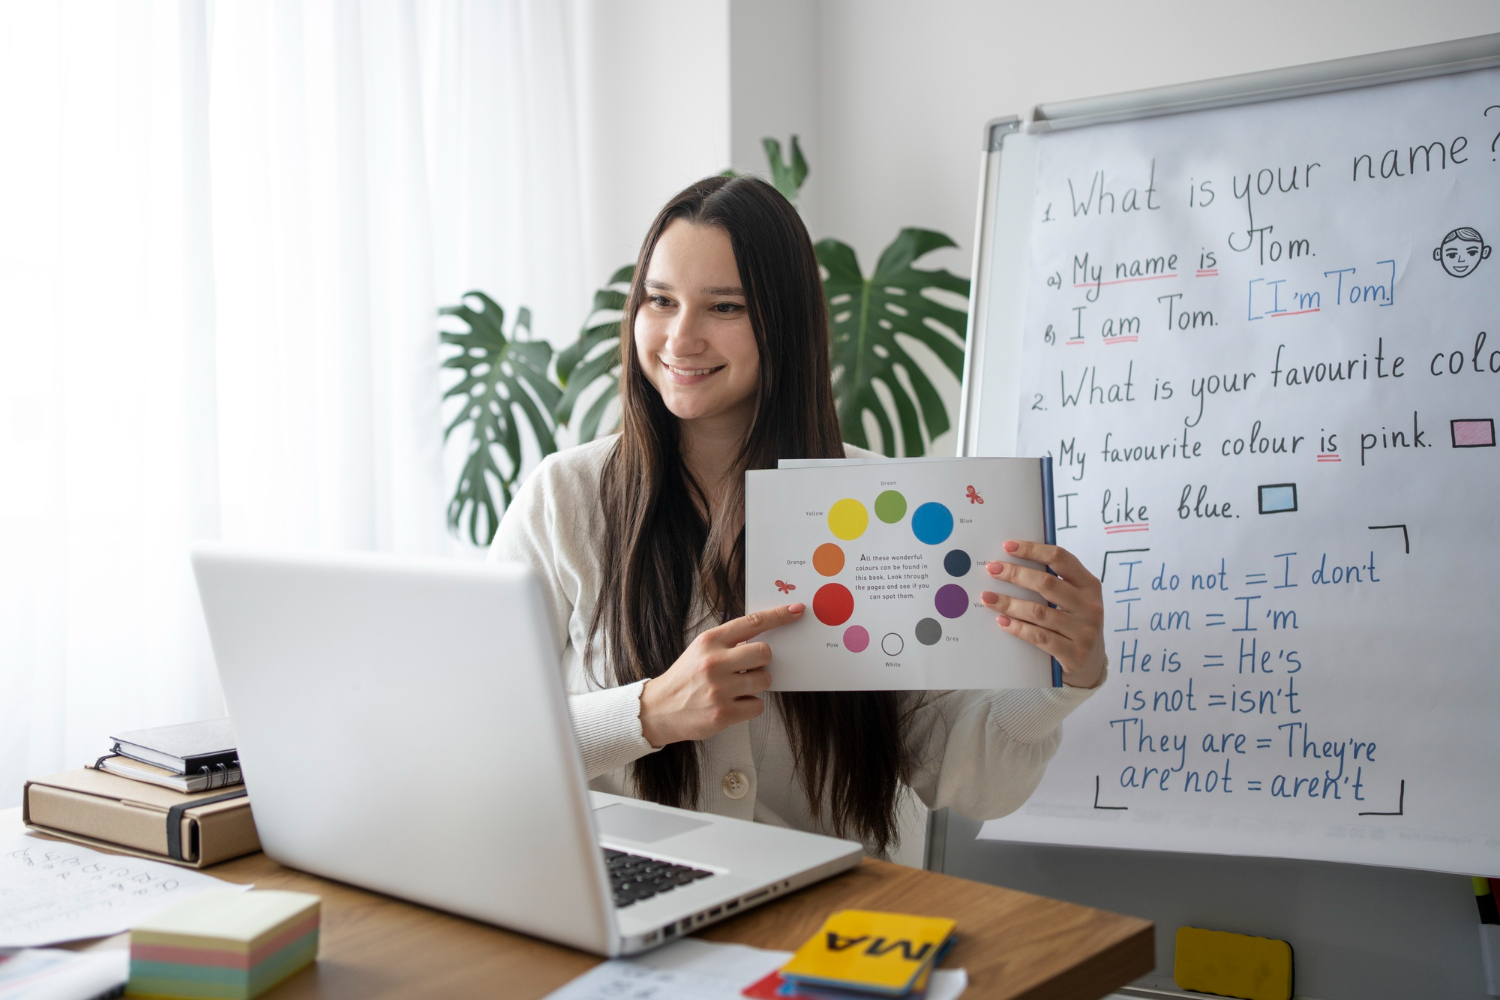 1. What is your name?
a) My name is Tom.
b) I am Tom. [I'm Tom.]
2. What is your favourite colo
My favourite colour is pink.
I like blue.
I do not = I don't
I am = I'm
He is = He's
is not = isn't
They are = They're
are not = aren't
Green
Yellow
Blue
Orange
All these wonderful
colours can be found in
this book. Look through
the pages and see if you
can spot them.
Pink
Grey
White
MA